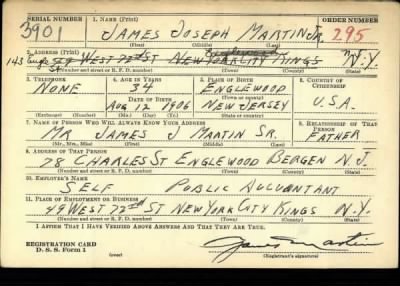 SERIAL NUMBER 1. NAME (Print) ORDER NUMBER
3901 JAMES JOSEPH MARTIN JR. 295
(First) (Middle) (Last)
2. ADDRESS (Print) Englewood
143 Engle St 49 WEST 72nd ST NEW YORK CITY KINGS N.Y. N.J.
(Number and street or R. F. D. number) (Town) (County) (State)
3. TELEPHONE 4. AGE IN YEARS 5. PLACE OF BIRTH 6. COUNTRY OF CITIZENSHIP
NONE 34 ENGLEWOOD
DATE OF BIRTH (Town or county)
AUG 12 1906 NEW JERSEY U.S.A.
(Exchange) (Number) (Mo.) (Day) (Yr.) (State or country)
7. NAME OF PERSON WHO WILL ALWAYS KNOW YOUR ADDRESS 8. RELATIONSHIP OF THAT PERSON
MR JAMES J MARTIN SR. FATHER
(Mr., Mrs., Miss) (First) (Middle) (Last)
9. ADDRESS OF THAT PERSON
28 CHARLES ST ENGLEWOOD BERGEN N.J.
(Number and street or R. F. D. number) (Town) (County) (State)
10. EMPLOYER'S NAME
SELF PUBLIC ACCOUNTANT
11. PLACE OF EMPLOYMENT OR BUSINESS
49 WEST 72nd ST NEW YORK CITY KINGS N.Y.
(Number and street or R. F. D. number) (Town) (County) (State)
I AFFIRM THAT I HAVE VERIFIED ABOVE ANSWERS AND THAT THEY ARE TRUE.
REGISTRATION CARD
D. S. S. Form 1
(over) (Registrant's signature)